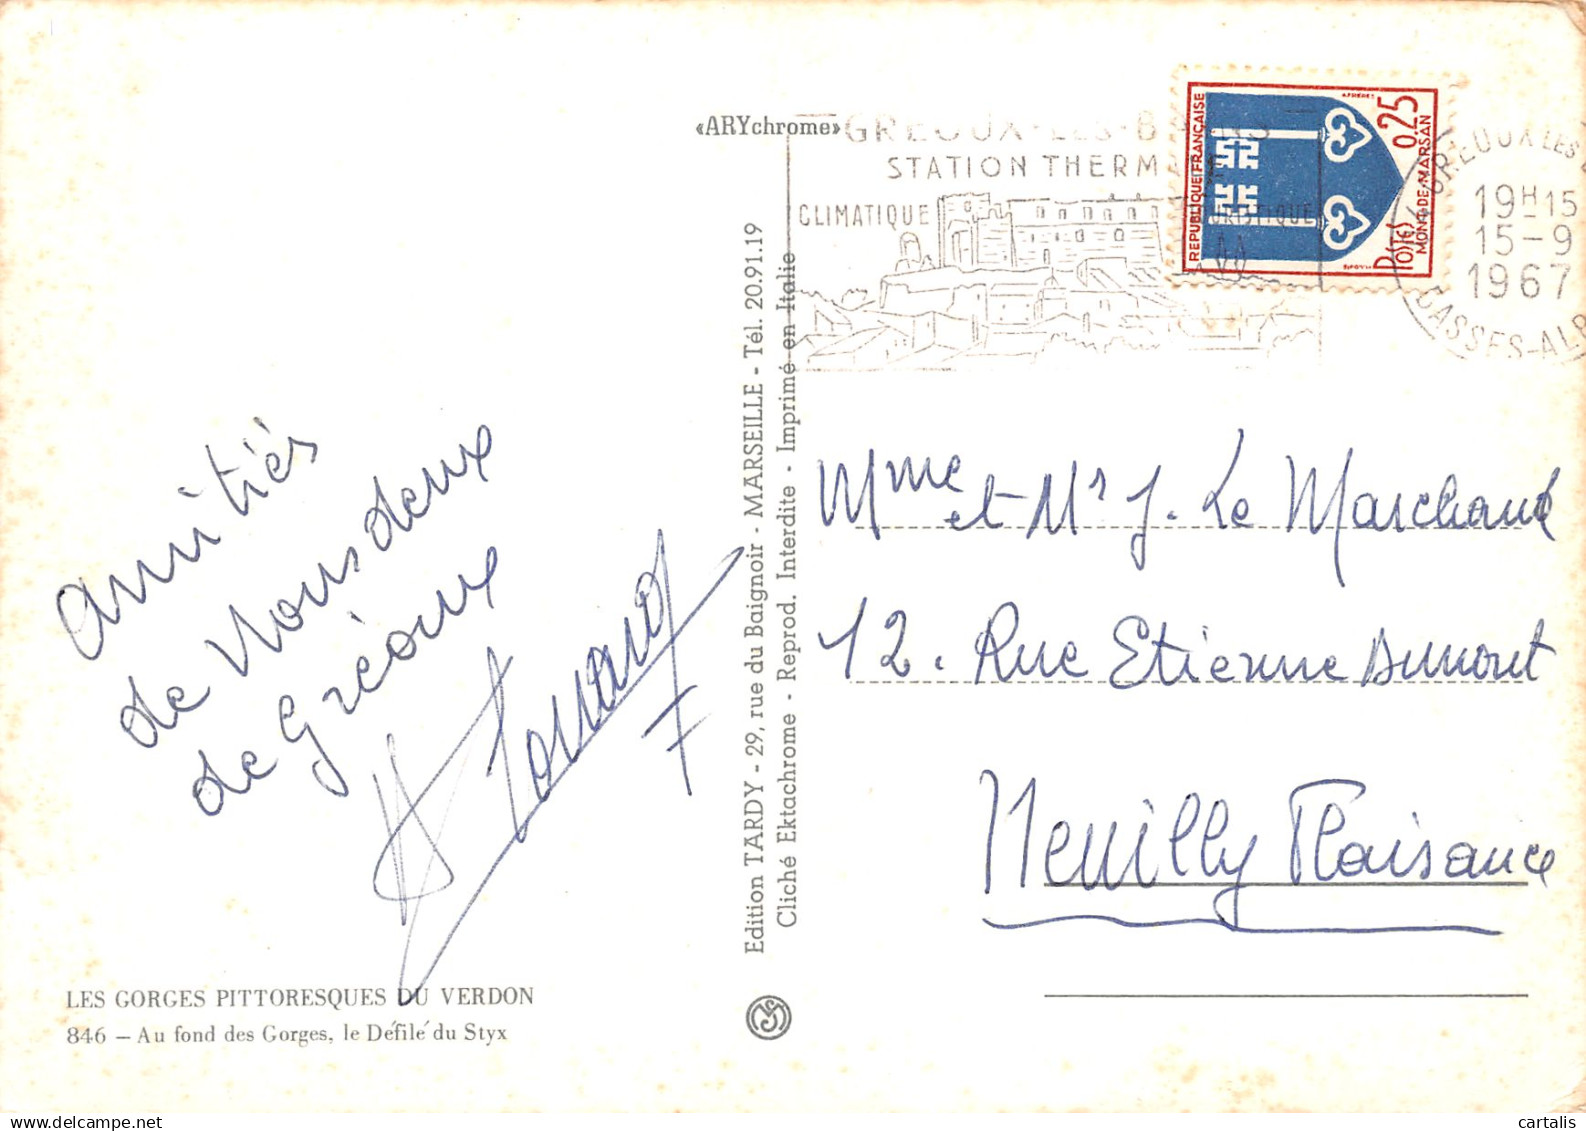 «ARYchrome»
GREOUX-LES-BAINS
STATION THERM
CLIMATIQUE
TOURISTIQUE
REPUBLIQUE FRANÇAISE
0,25
Postes
MONT-DE-MARSAN
GREOUX LES
19H15
15-9
1967
BASSES-ALP
amitiés
de Nous deux
de Gréoux
Edition TARDY - 29, rue du Baignoir - MARSEILLE - Tél. 20.91.19
Cliché Ektachrome - Reprod. Interdite - Imprimé en Italie
Mme et Mr J. Le Marchand
12. Rue Etienne Dumont
Neuilly Plaisance
LES GORGES PITTORESQUES DU VERDON
846 — Au fond des Gorges, le Défilé du Styx
cartalis